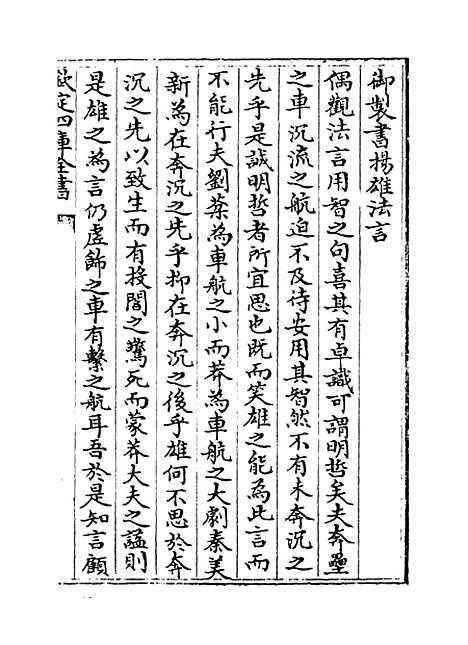 御製書揚雄法言
偶觀法言用智之句喜其有卓識可謂明哲矣夫奔壘
之車沉流之航迫不及待安用其智然不有未奔沉之
先乎是誠明哲者所宜思也既而笑雄之能為此言而
不能行夫劉棻為車航之小而莽為車航之大劇秦美
新為在奔沉之先乎抑在奔沉之後乎雄何不思於奔
沉之先以致生而有投閣之驚死而蒙莽大夫之謚則
是雄之為言仍虚飾之車有繫之航耳吾於是知言顧
欽定四庫全書